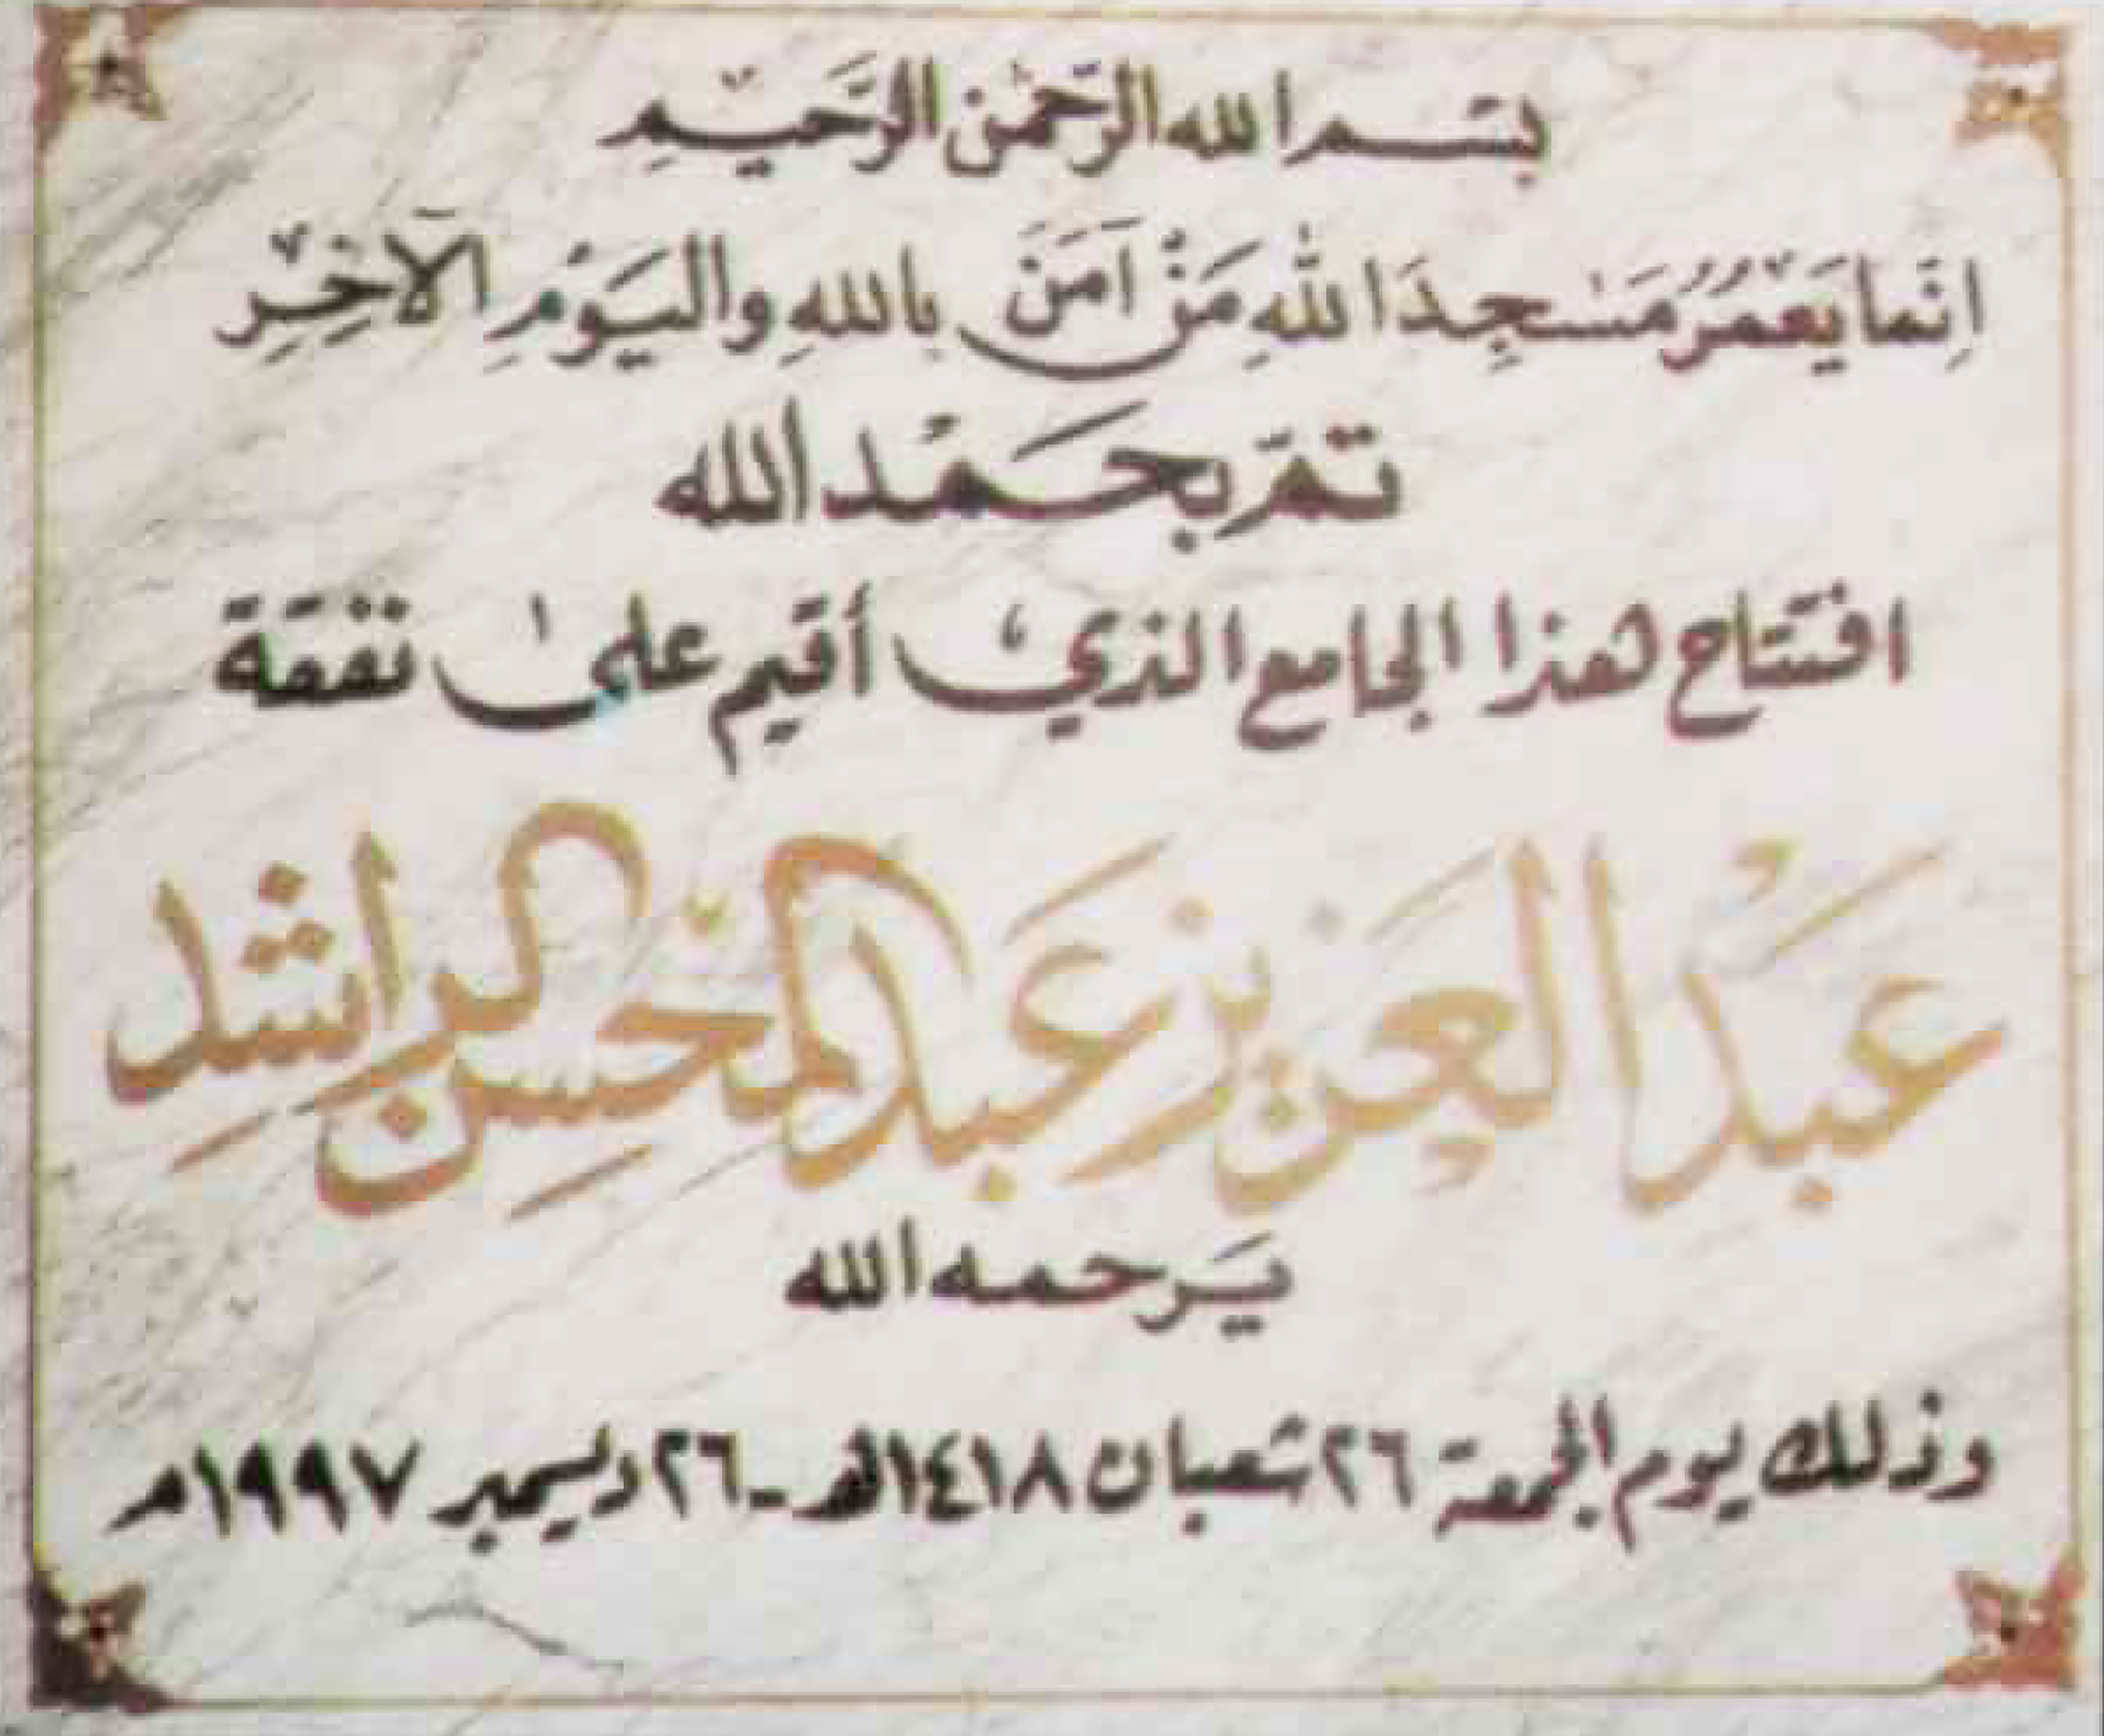 بسم الله الرحمن الرحيم
إنما يعمر مسٰجد الله من آمن بالله واليوم الآخر
تم بحمد الله
افتتاح هذا الجامع الذي أقيم على نفقة
عبد العزيز عبد المحسن الراشد
يرحمه الله
وذلك يوم الجمعة ٢٦ شعبان ١٤١٨هـ - ٢٦ ديسمبر ١٩٩٧م